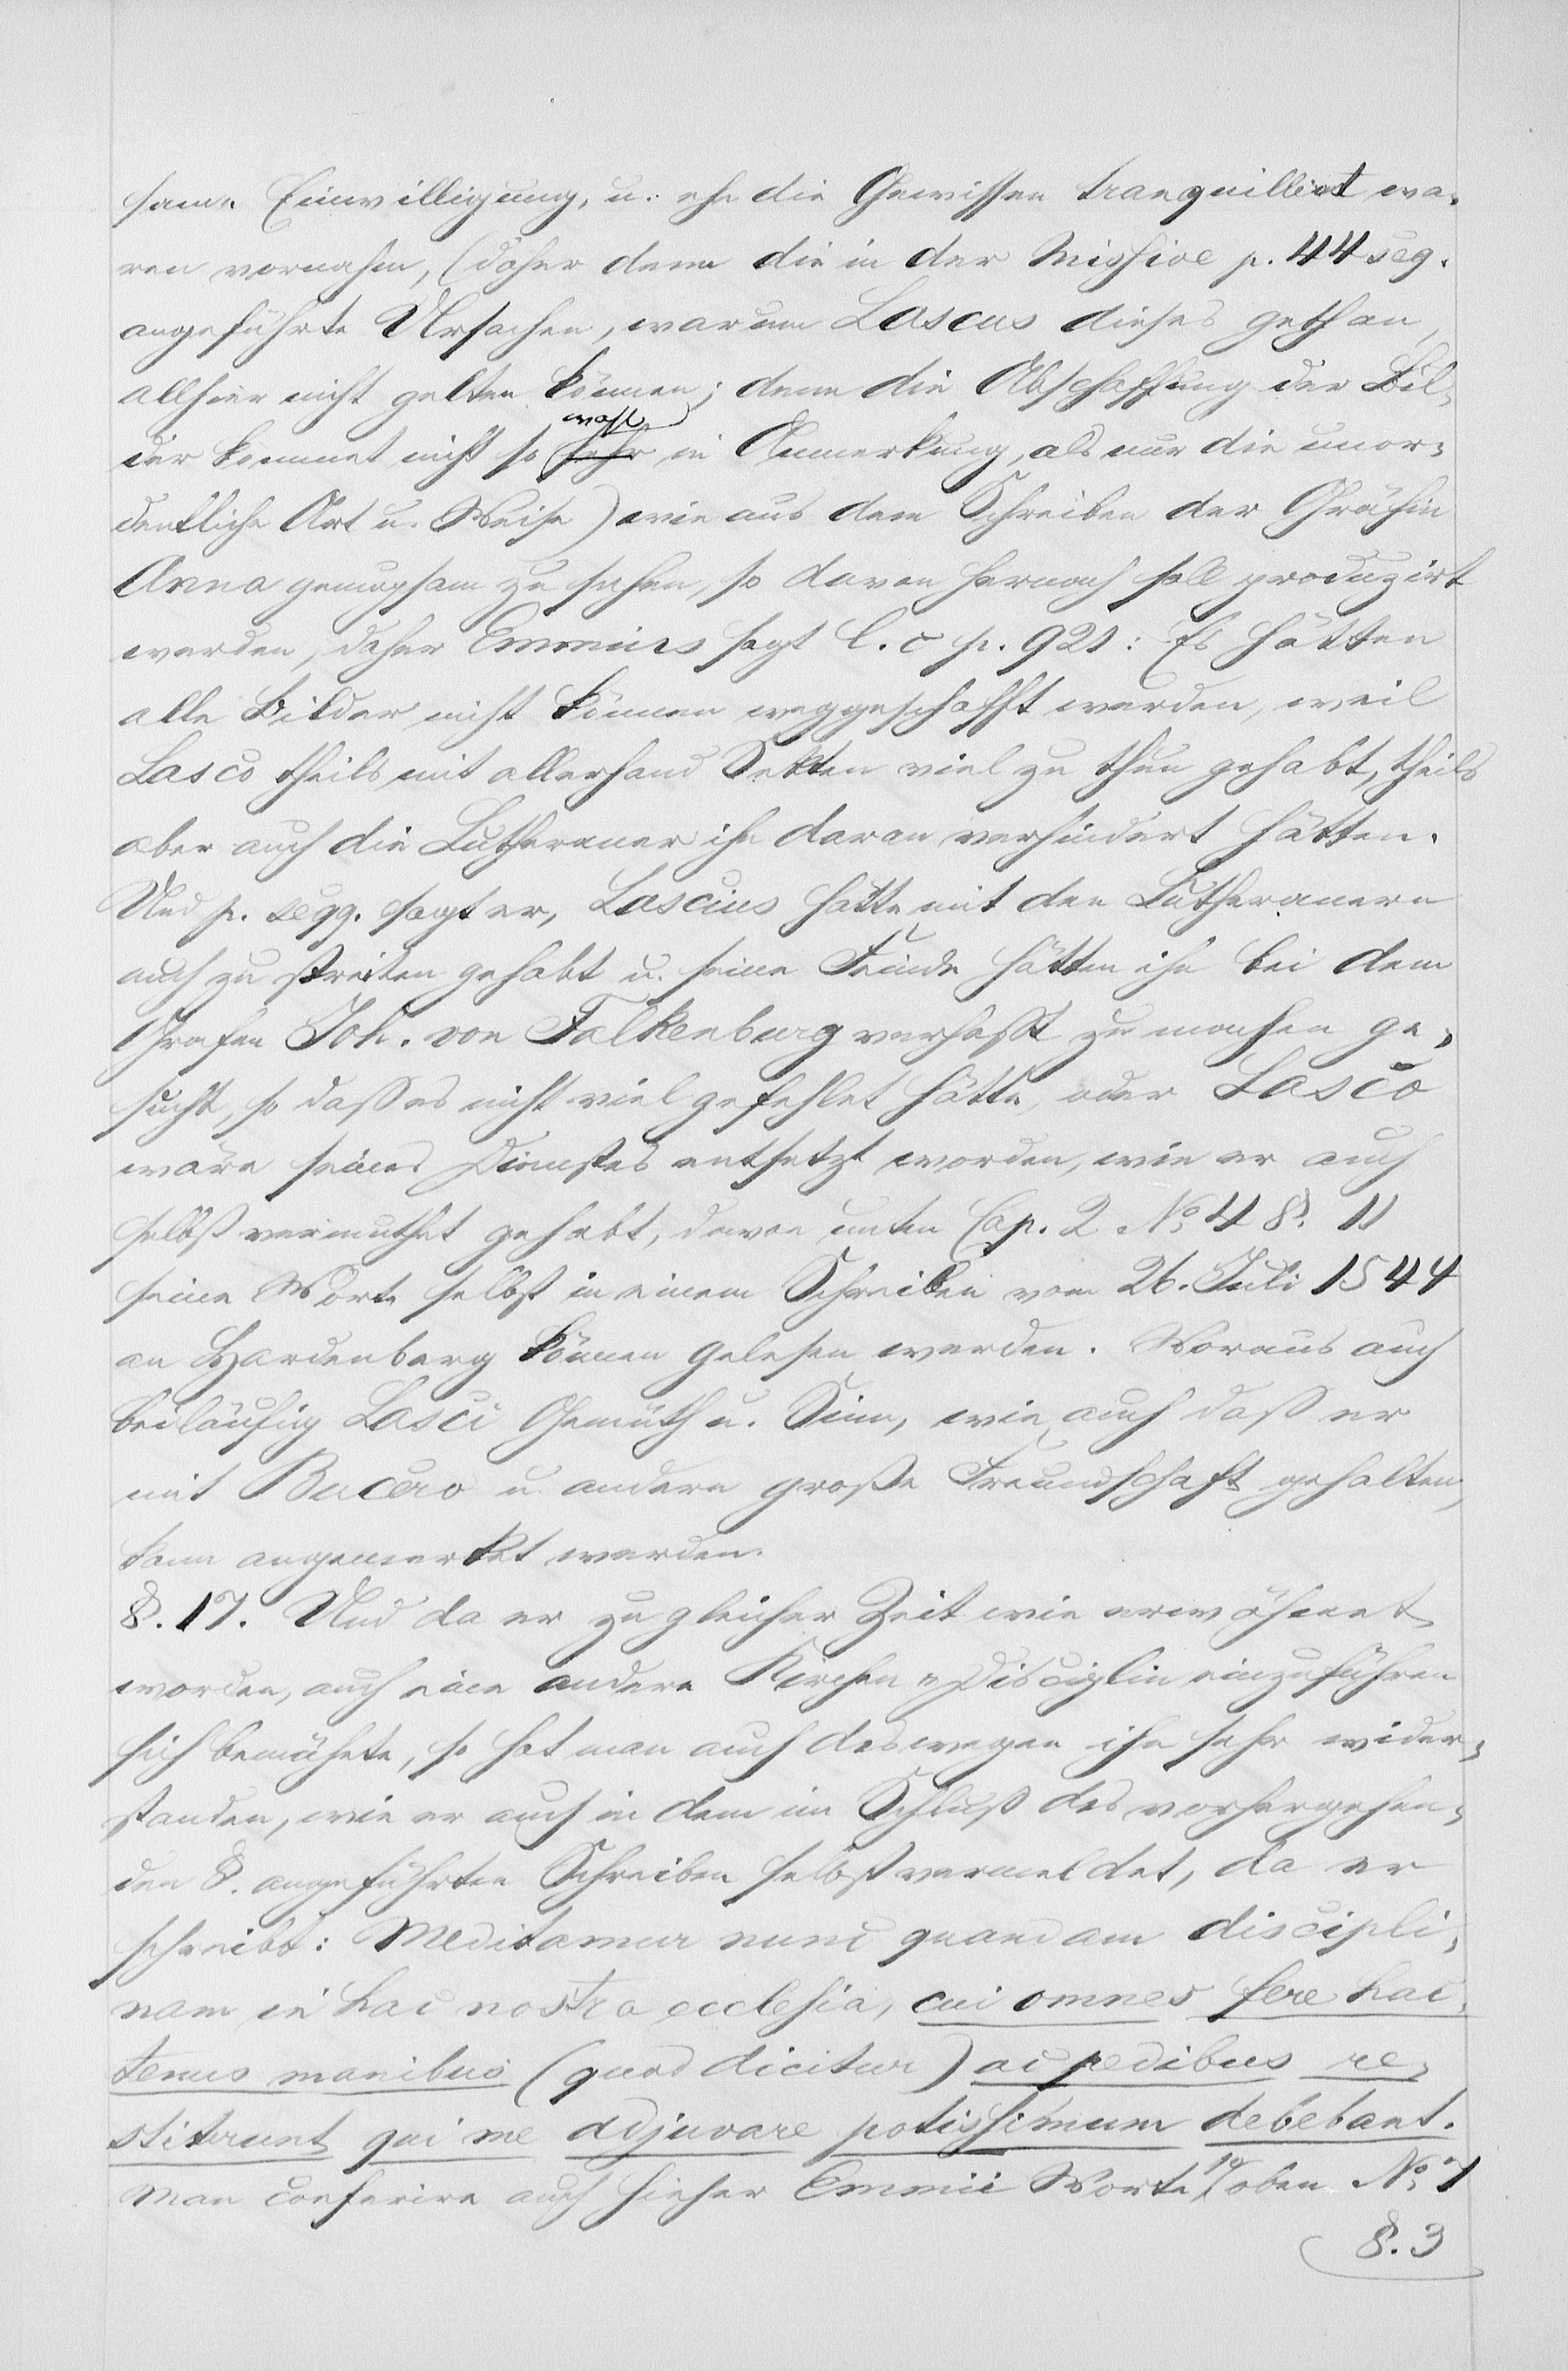 same Einwilligung, u. ehe die Gewissen tranquillirt wa-
ren vornahm, (daher denn die in der Missive p. 44 seq.
angeführte Ursachen, warum Lascus dieses gethan,
allhier nicht gelten können; denn die Abschaffung der Bil-
der kommet nicht so sehr wohl in Anmerkung, als nur die unor-
dentliche Art u. Weise) wie aus dem Schreiben der Gräfin
Anna genugsam zu sehen, so davon hernach soll produzirt
werden, daher Emmius sagt l. c p. 921: Es hätten
alle Bilder nicht können weggeschafft werden, weil
Lasco theils mit allerhand Sekten viel zu thun gehabt, theils
aber auch die Lutheraner ihn daran verhindert hätten.
Und p. seqq. sagt er, Lascius hatte mit den Lutheranern
auch zu streiten gehabt u. seine Feinde hätten ihn bei dem
Grafen Joh. von Falkenburg verhaßt zu machen ge-
sucht, so daß es nicht viel gefehlet hätte, oder Lasco
wäre seines Dienstes entsetzt worden, wie er auch
selbst vermuthet gehabt, davon unten Cap. 2 No 4 §. 11
seine Worte selbst in einem Schreiben vom 26. Juli 1544
an Hardenberg können gelesen werden. Woraus auch
beiläufig Lasci Gemüth u. Sinn, wie auch daß er
mit Bucero u andern große Freundschaft gehalten,
kann angemerket werden.
§. 17. Und da er zu gleicher Zeit wie erwöhnet
worden, auch eine andere Kirchen-Disciplin einzuführen
sich bemühete, so hat man auch deswegen ihn sehr wider-
standen, wie er auch in dem im Schluß des vorhergehen-
den §. angeführten Schreiben selbst vermeldet, da er
schreibt: Meditamur nunc quandam discipli-
nam in hac nostra ecclesia, cui omnes fere hac-
tenus manibus (quod dicitur) ac pedibus re-
stiterunt qui me adjuvare potissimum debebant.
Man conferire auch hieher Emmii Worte 1) oben No 7
§. 3